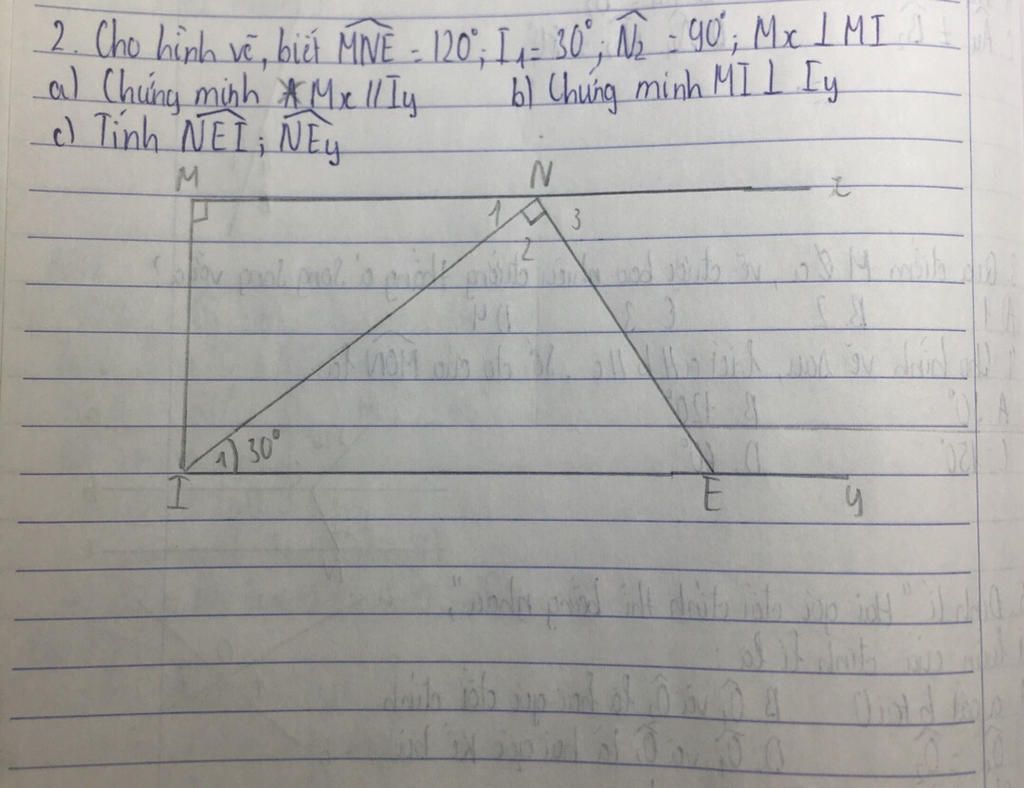 2. Cho hình vẽ, biết MNE = 120°; I1 = 30°; N2 = 90°; Mx ⊥ MI
a) Chứng minh Mx // Iy b) Chứng minh MI ⊥ Iy
c) Tính NEI; NEy
M N x
1 2 3
1 30°
I E y